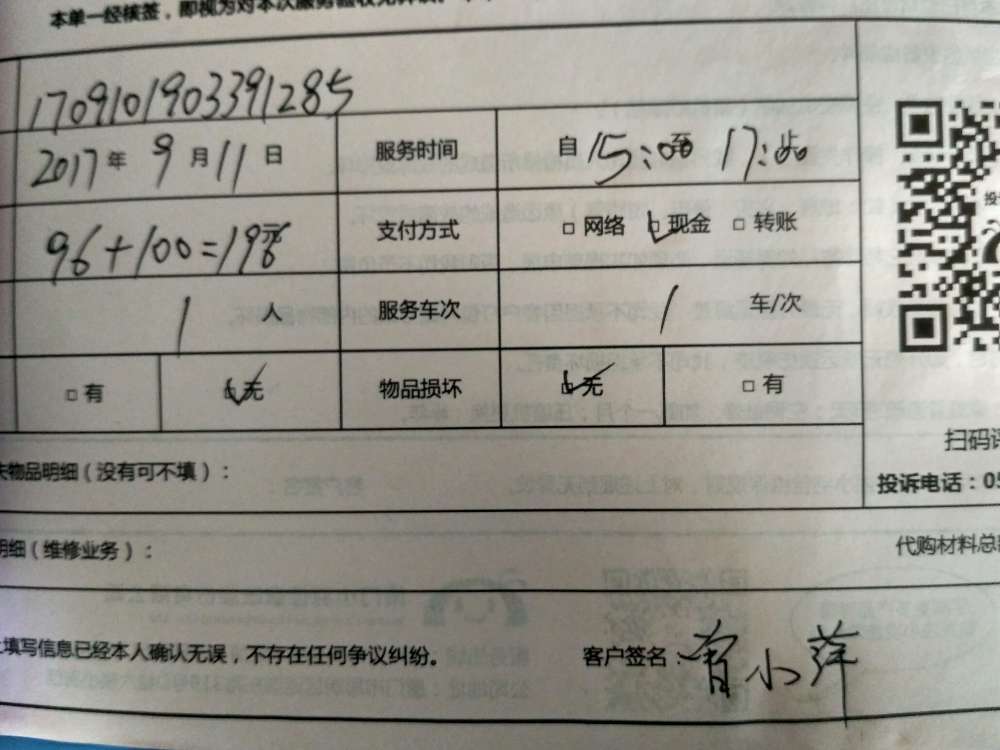 本单一经核签，即视为对本次服务验收无异议。
1709101903391285
2017年 9月11日 服务时间 自15:00至 17:00止
96+100=196元 支付方式 □ 网络 ☑ 现金 □ 转账
1 人 服务车次 1 车/次
□ 有 ☑ 无 物品损坏 ☑ 无 □ 有
扫码评
失物品明细（没有可不填）：
投诉电话：05
明细（维修业务）：
代购材料总
填写信息已经本人确认无误，不存在任何争议纠纷。 客户签名： 小萍